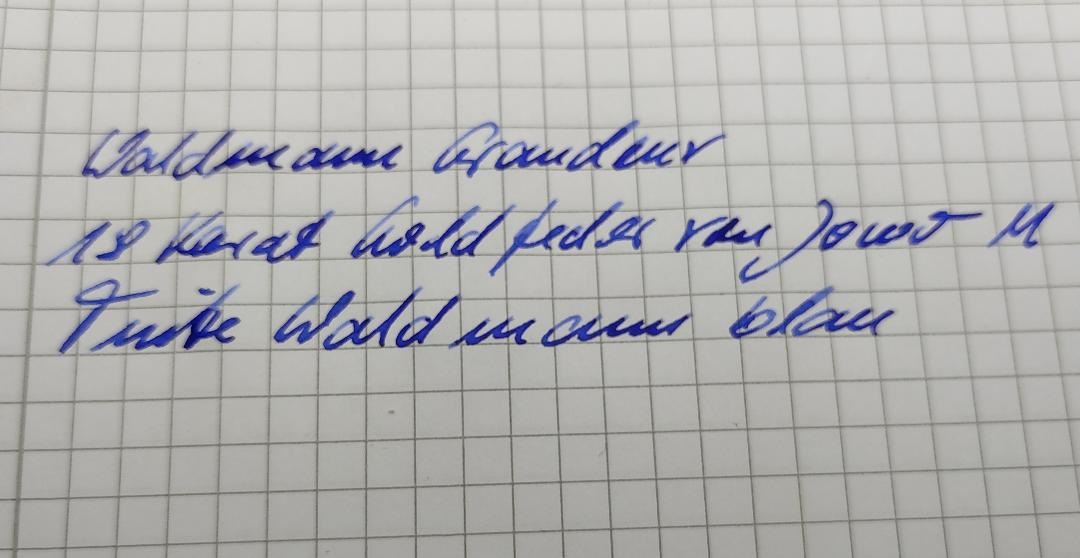 Waldmann Grandeur
18 Karat Goldfeder von Jowo M
Tinte Waldmann blau